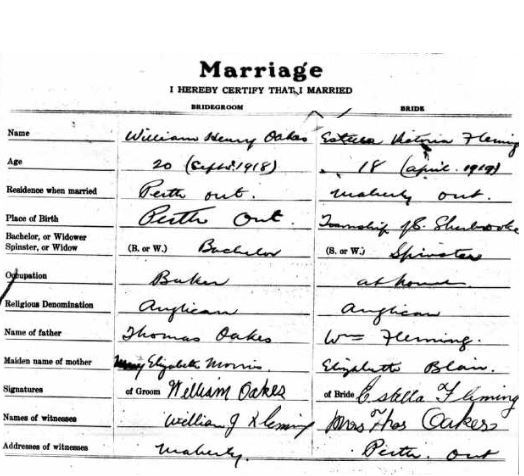 Marriage
I HEREBY CERTIFY THAT I MARRIED
BRIDEGROOM BRIDE
Name William Henry Oakes Estella Victoria Fleming
Age 20 (Sept. 1918) 18 (april. 1919)
Residence when married Perth Ont. Maberly Ont.
Place of Birth Perth Ont. Township of S. Sherbrooke
Bachelor, or Widower
Spinster, or Widow (B. or W.) Bachelor (S. or W.) Spinster
Occupation Baker at home
Religious Denomination Anglican Anglican
Name of father Thomas Oakes Wm Fleming.
Maiden name of mother Elizabeth Morris Elizabeth Blair.
Signatures of Groom William Oakes of Bride Estella Fleming
Names of witnesses William J Fleming Mrs Thos Oakes
Addresses of witnesses Maberly. Perth Ont